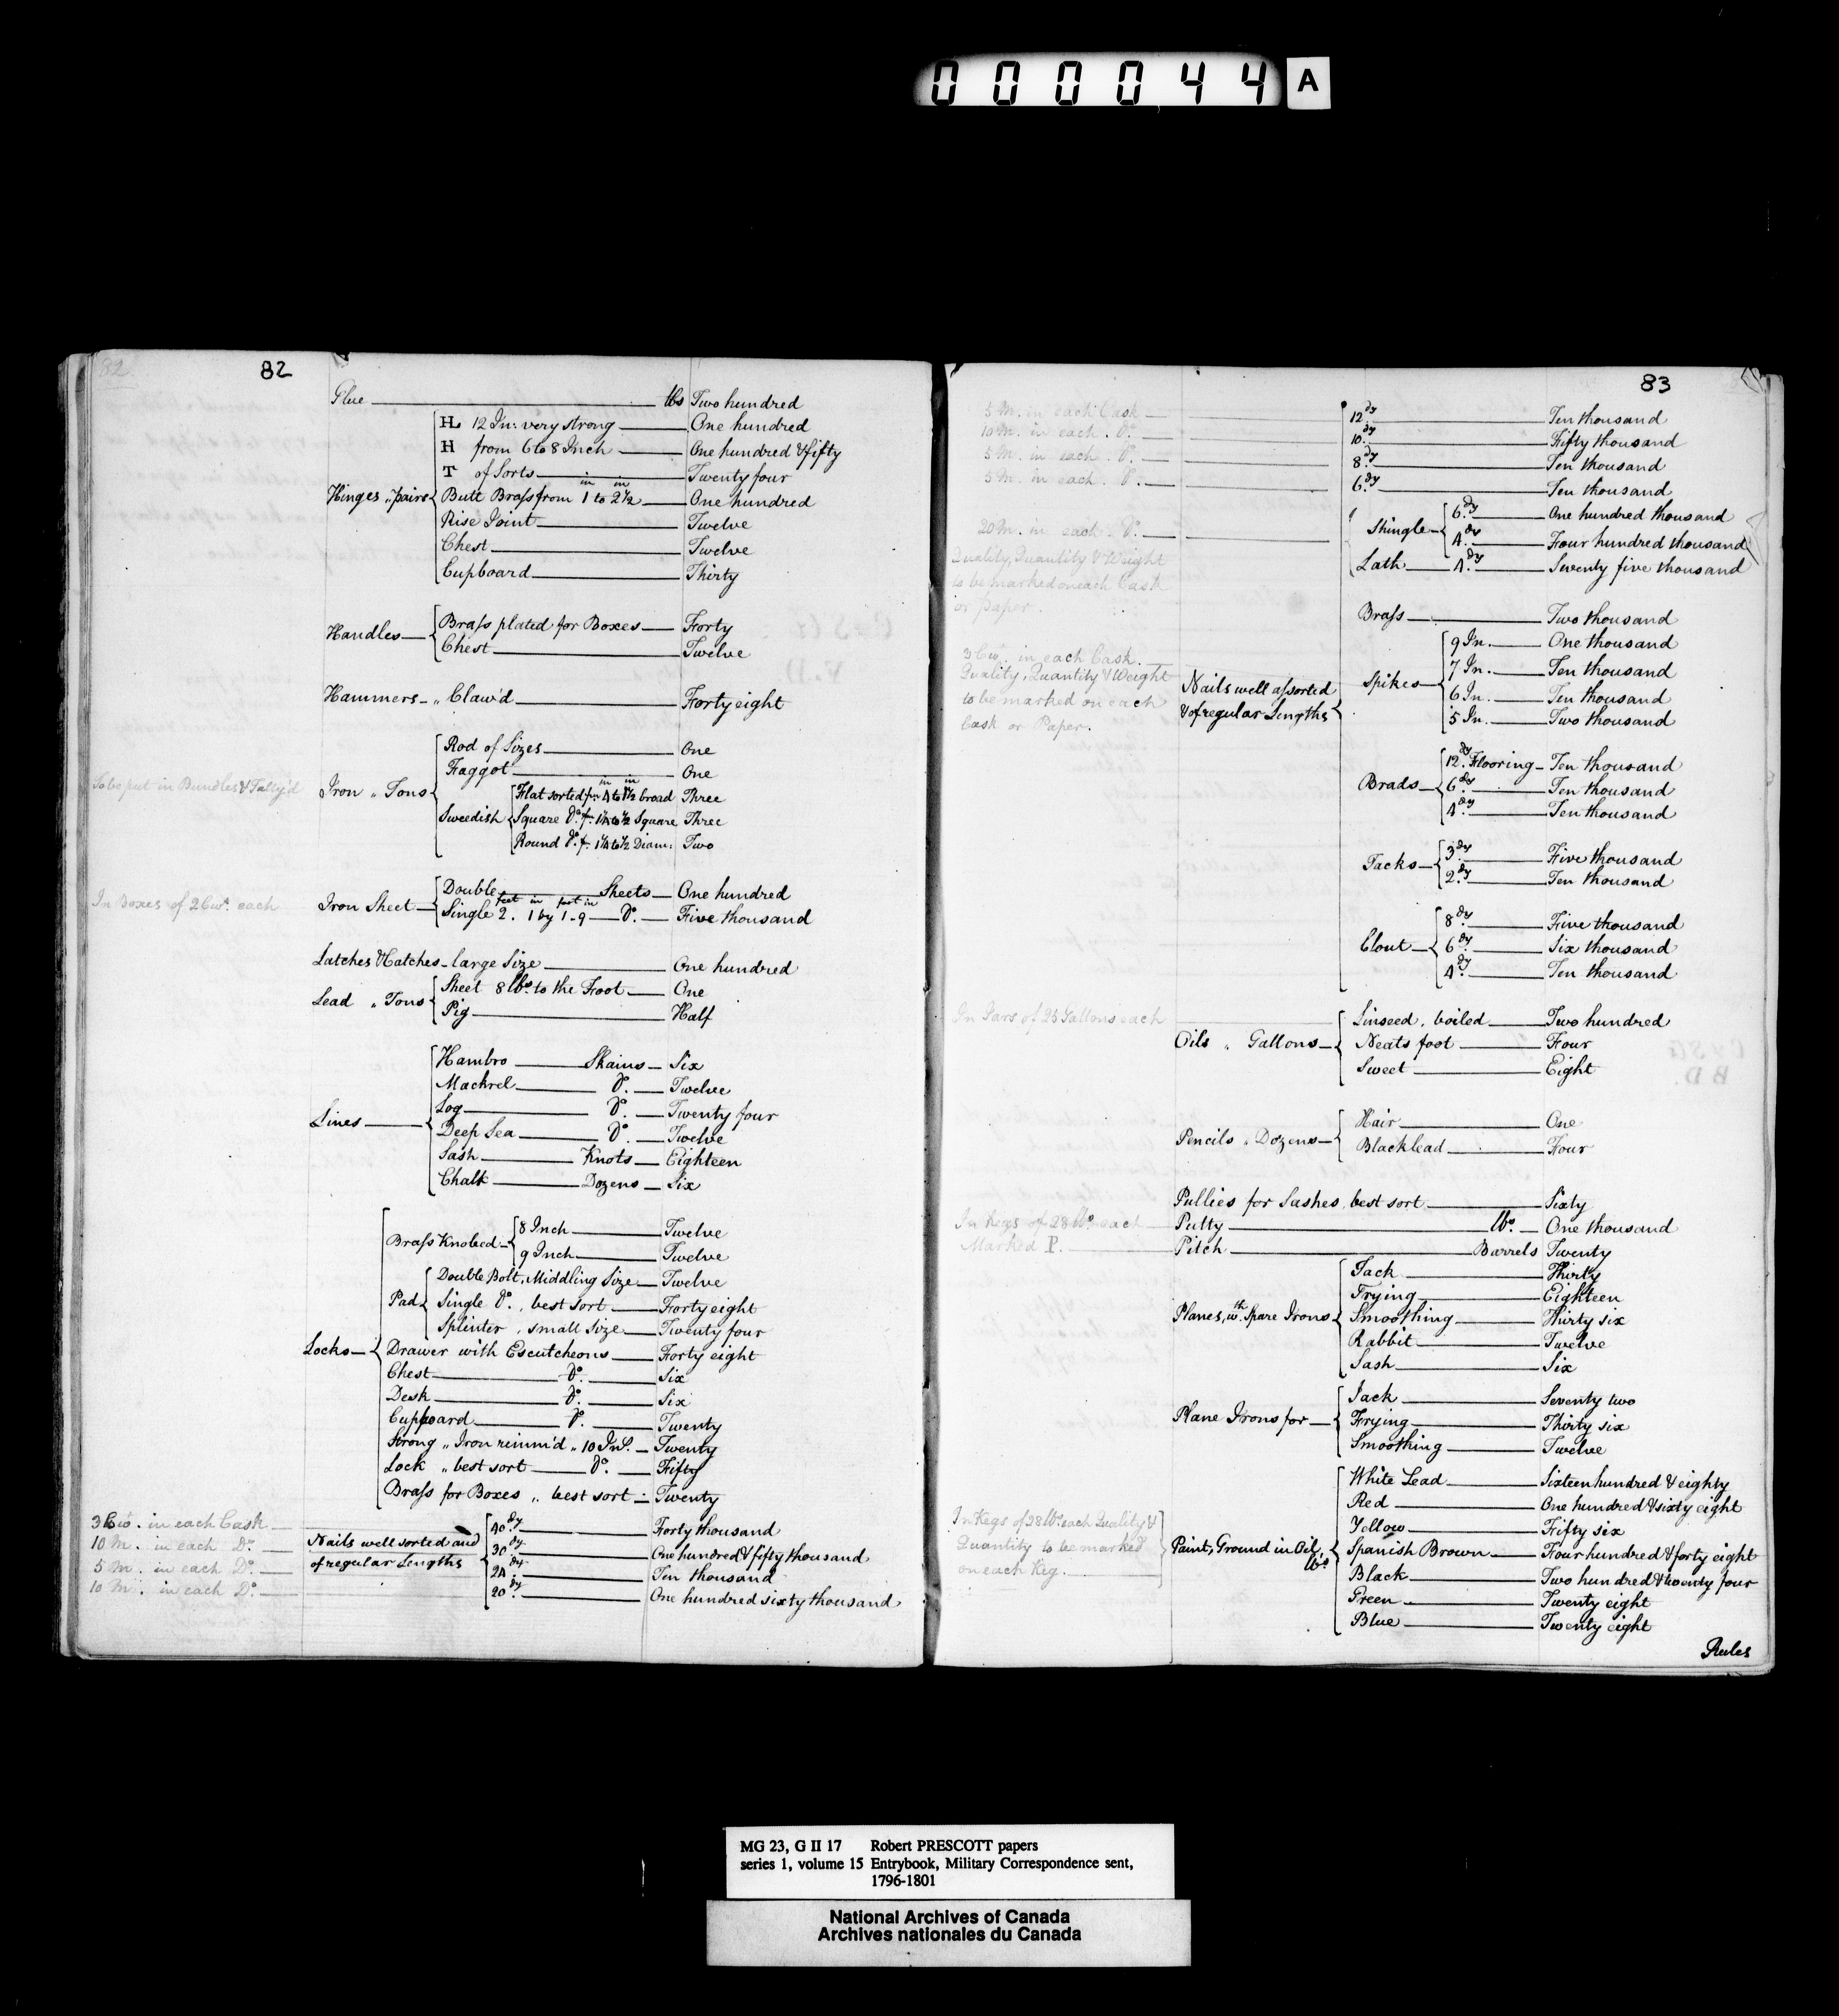 000044 A
82
82
Glue lbs Two hundred
HL 12 In: very strong One hundred
H from 6 to 8 Inch One hundred & fifty
T of Sorts Twenty four
Hinges „ pairs Butt Brass from 1 in to 2½ in One hundred
Rise Joint Twelve
Chest Twelve
Cupboard Thirty
Handles Brass plated for Boxes Forty
Chest Twelve
Hammers „ Claw'd Forty eight
Rod of Sizes One
Faggot One
To be put in Bundles & Tally'd Iron „ Tons
Sweedish Flat sorted fm 4 in to 1½ in broad Three
Square Do. f. 1¼ to ½ Square Three
Round Do. f. 1¼ to ½ Diam: Two
In Boxes of 2 Cwt. each Iron Sheet Double Sheets One hundred
Single 2 feet . 1 in by 1 foot - 9 in Do. Five thousand
Latches & Catches - large Size One hundred
Lead „ Tons Sheet 8 lbs. to the Foot One
Pig Half
Lines Hambro Skains Six
Mackrel Do. Twelve
Log Do. Twenty four
Deep Sea Do. Twelve
Sash Knots Eighteen
Chalk Dozens Six
Brass Knobed 8 Inch Twelve
9 Inch Twelve
Pad Double Bolt, Middling Size Twelve
Single Do., best sort Forty eight
Splinter, small Size Twenty four
Locks Drawer with Escutcheons Forty eight
Chest Do. Six
Desk Do. Six
Cupboard Do. Twenty
Strong „ Iron rimm'd „ 10 Ins. Twenty
Lock „ best sort Do. Fifty
Brass for Boxes „ best sort Twenty
3 Cwt. in each Cask 40.dy Forty thousand
10 M. in each Do. Nails well sorted and 30.dy One hundred & fifty thousand
5 M. in each Do. of regular Lengths 24.dy Ten thousand
10 M. in each Do. 20.dy One hundred sixty thousand
83
5 M. in each Cask 12.dy Ten thousand
10 M. in each . Do. 10.dy Fifty thousand
5 M. in each . Do. 8.dy Ten thousand
5 M. in each . Do. 6.dy Ten thousand
Shingle 6.dy One hundred thousand
20 M. in each . Do. 4.dy Four hundred thousand
Lath 4.dy Seventy five thousand
Quality, Quantity & Weight
to be marked on each Cask
or paper.
Brass Two thousand
3 Cwt. in each Cask.
Quality, Quantity & Weight
to be marked on each
Cask or Paper.
Nails well assorted
& of regular Lengths
Spikes 9 In. One thousand
7 In. Ten thousand
6 In. Ten thousand
5 In. Two thousand
Brads 12.dy Flooring Ten thousand
6.dy Ten thousand
4.dy Ten thousand
Tacks 3.dy Five thousand
2.dy Ten thousand
Clout 8.dy Five thousand
6.dy Six thousand
4.dy Ten thousand
In Jars of 25 Gallons each Linseed, boiled Two hundred
Oils „ Gallons Neats foot Four
Sweet Eight
Pencils „ Dozens Hair One
Blacklead Four
Pullies for Sashes, best sort Sixty
In Kegs of 28 lbs. each Putty lbs. One thousand
Marked P. Pitch Barrels Twenty
Planes, wth. Spare Irons Jack Thirty
Trying Eighteen
Smoothing Thirty six
Rabbit Twelve
Sash Six
Plane Irons for Jack Seventy two
Trying Thirty six
Smoothing Twelve
White Lead Sixteen hundred & eighty
Red One hundred & sixty eight
In Kegs of 28 lbs. each Quality & Yellow Fifty six
Quantity to be marked Paint, Ground in Oil, lbs. Spanish Brown Four hundred & forty eight
on each Keg. Black Two hundred & twenty four
Green Twenty eight
Blue Twenty eight
Rules
MG 23, G II 17 Robert PRESCOTT papers
series 1, volume 15 Entrybook, Military Correspondence sent,
1796-1801
National Archives of Canada
Archives nationales du Canada